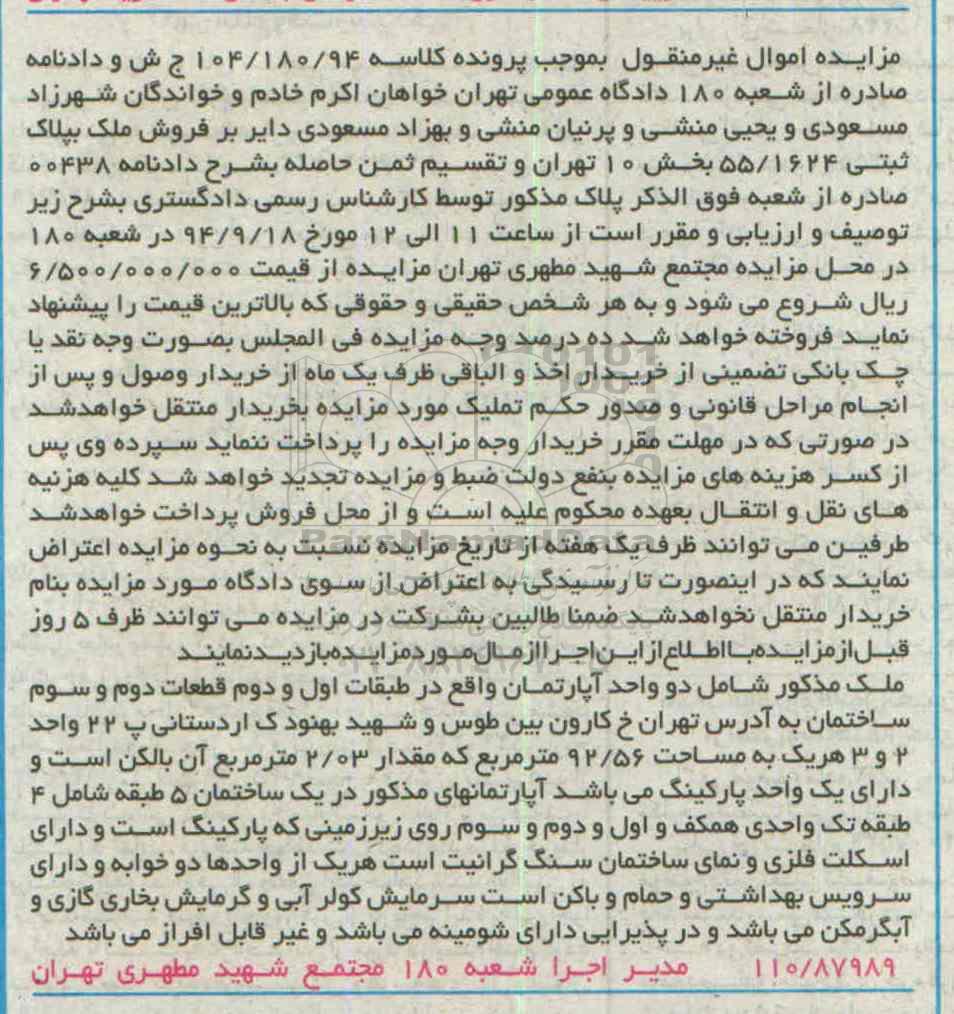 مزایده اموال غیرمنقول بموجب پرونده کلاسه ۱۰۴/۱۸۰/۹۴ ج ش و دادنامه
صادره از شعبه ۱۸۰ دادگاه عمومی تهران خواهان اکرم خادم و خواندگان شهرزاد
مسعودی و یحیی منشی و پرنیان منشی و بهزاد مسعودی دایر بر فروش ملک بپلاک
ثبتی ۵۵/۱۶۲۴ بخش ۱۰ تهران و تقسیم ثمن حاصله بشرح دادنامه ۰۰۴۳۸
صادره از شعبه فوق الذکر پلاک مذکور توسط کارشناس رسمی دادگستری بشرح زیر
توصیف و ارزیابی و مقرر است از ساعت ۱۱ الی ۱۲ مورخ ۹۴/۹/۱۸ در شعبه ۱۸۰
در محل مزایده مجتمع شهید مطهری تهران مزایده از قیمت ۶/۵۰۰/۰۰۰/۰۰۰
ریال شروع می شود و به هر شخص حقیقی و حقوقی که بالاترین قیمت را پیشنهاد
نماید فروخته خواهد شد ده درصد وجه مزایده فی المجلس بصورت وجه نقد یا
چک بانکی تضمینی از خریدار اخذ و الباقی ظرف یک ماه از خریدار وصول و پس از
انجام مراحل قانونی و صدور حکم تملیک مورد مزایده بخریدار منتقل خواهدشد
در صورتی که در مهلت مقرر خریدار وجه مزایده را پرداخت ننماید سپرده وی پس
از کسر هزینه های مزایده بنفع دولت ضبط و مزایده تجدید خواهد شد کلیه هزنیه
های نقل و انتقال بعهده محکوم علیه است و از محل فروش پرداخت خواهدشد
طرفین می توانند ظرف یک هفته از تاریخ مزایده نسبت به نحوه مزایده اعتراض
نمایند که در اینصورت تا رسیدگی به اعتراض از سوی دادگاه مورد مزایده بنام
خریدار منتقل نخواهدشد ضمنا طالبین بشرکت در مزایده می توانند ظرف ۵ روز
قبل از مزایده با اطلاع از این اجرا از مال مورد مزایده بازدید نمایند
ملک مذکور شامل دو واحد آپارتمان واقع در طبقات اول و دوم قطعات دوم و سوم
ساختمان به آدرس تهران خ کارون بین طوس و شهید بهنود ک اردستانی پ ۲۲ واحد
۲ و ۳ هریک به مساحت ۹۲/۵۶ مترمربع که مقدار ۲/۰۳ مترمربع آن بالکن است و
دارای یک واحد پارکینگ می باشد آپارتمانهای مذکور در یک ساختمان ۵ طبقه شامل ۴
طبقه تک واحدی همکف و اول و دوم و سوم روی زیرزمینی که پارکینگ است و دارای
اسکلت فلزی و نمای ساختمان سنگ گرانیت است هریک از واحدها دو خوابه و دارای
سرویس بهداشتی و حمام و باکن است سرمایش کولر آبی و گرمایش بخاری گازی و
آبگرمکن می باشد و در پذیرایی دارای شومینه می باشد و غیر قابل افراز می باشد
۱۱۰/۸۷۹۸۹ مدیر اجرا شعبه ۱۸۰ مجتمع شهید مطهری تهران
ParsNamadData